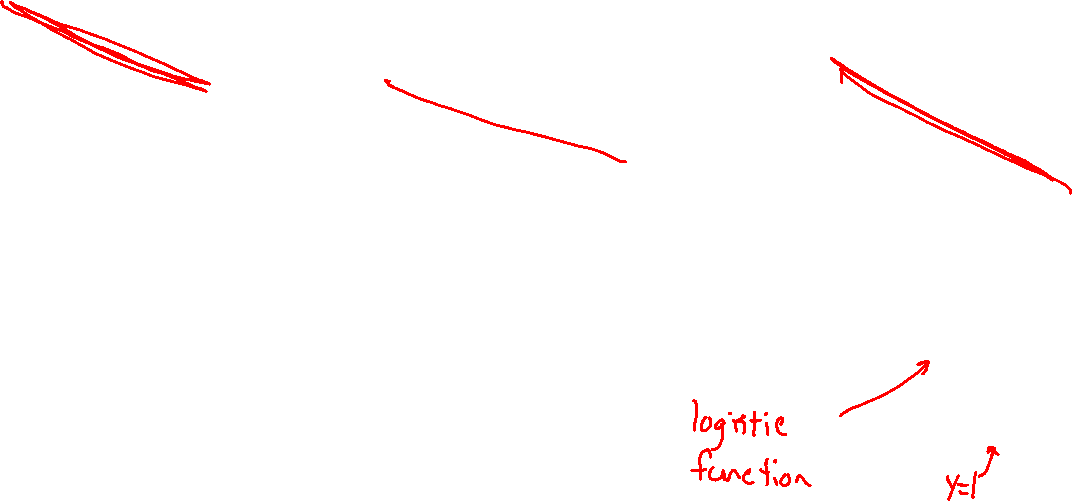 logistic
function
y=1